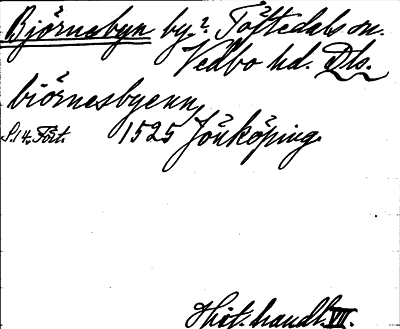 Björnebyn by.? Töftedals sn.
Vedbo hd. Dls.
biörnesbyenn
S. 14. Fört. 1525 Jönköping
Hist. handl. VII.